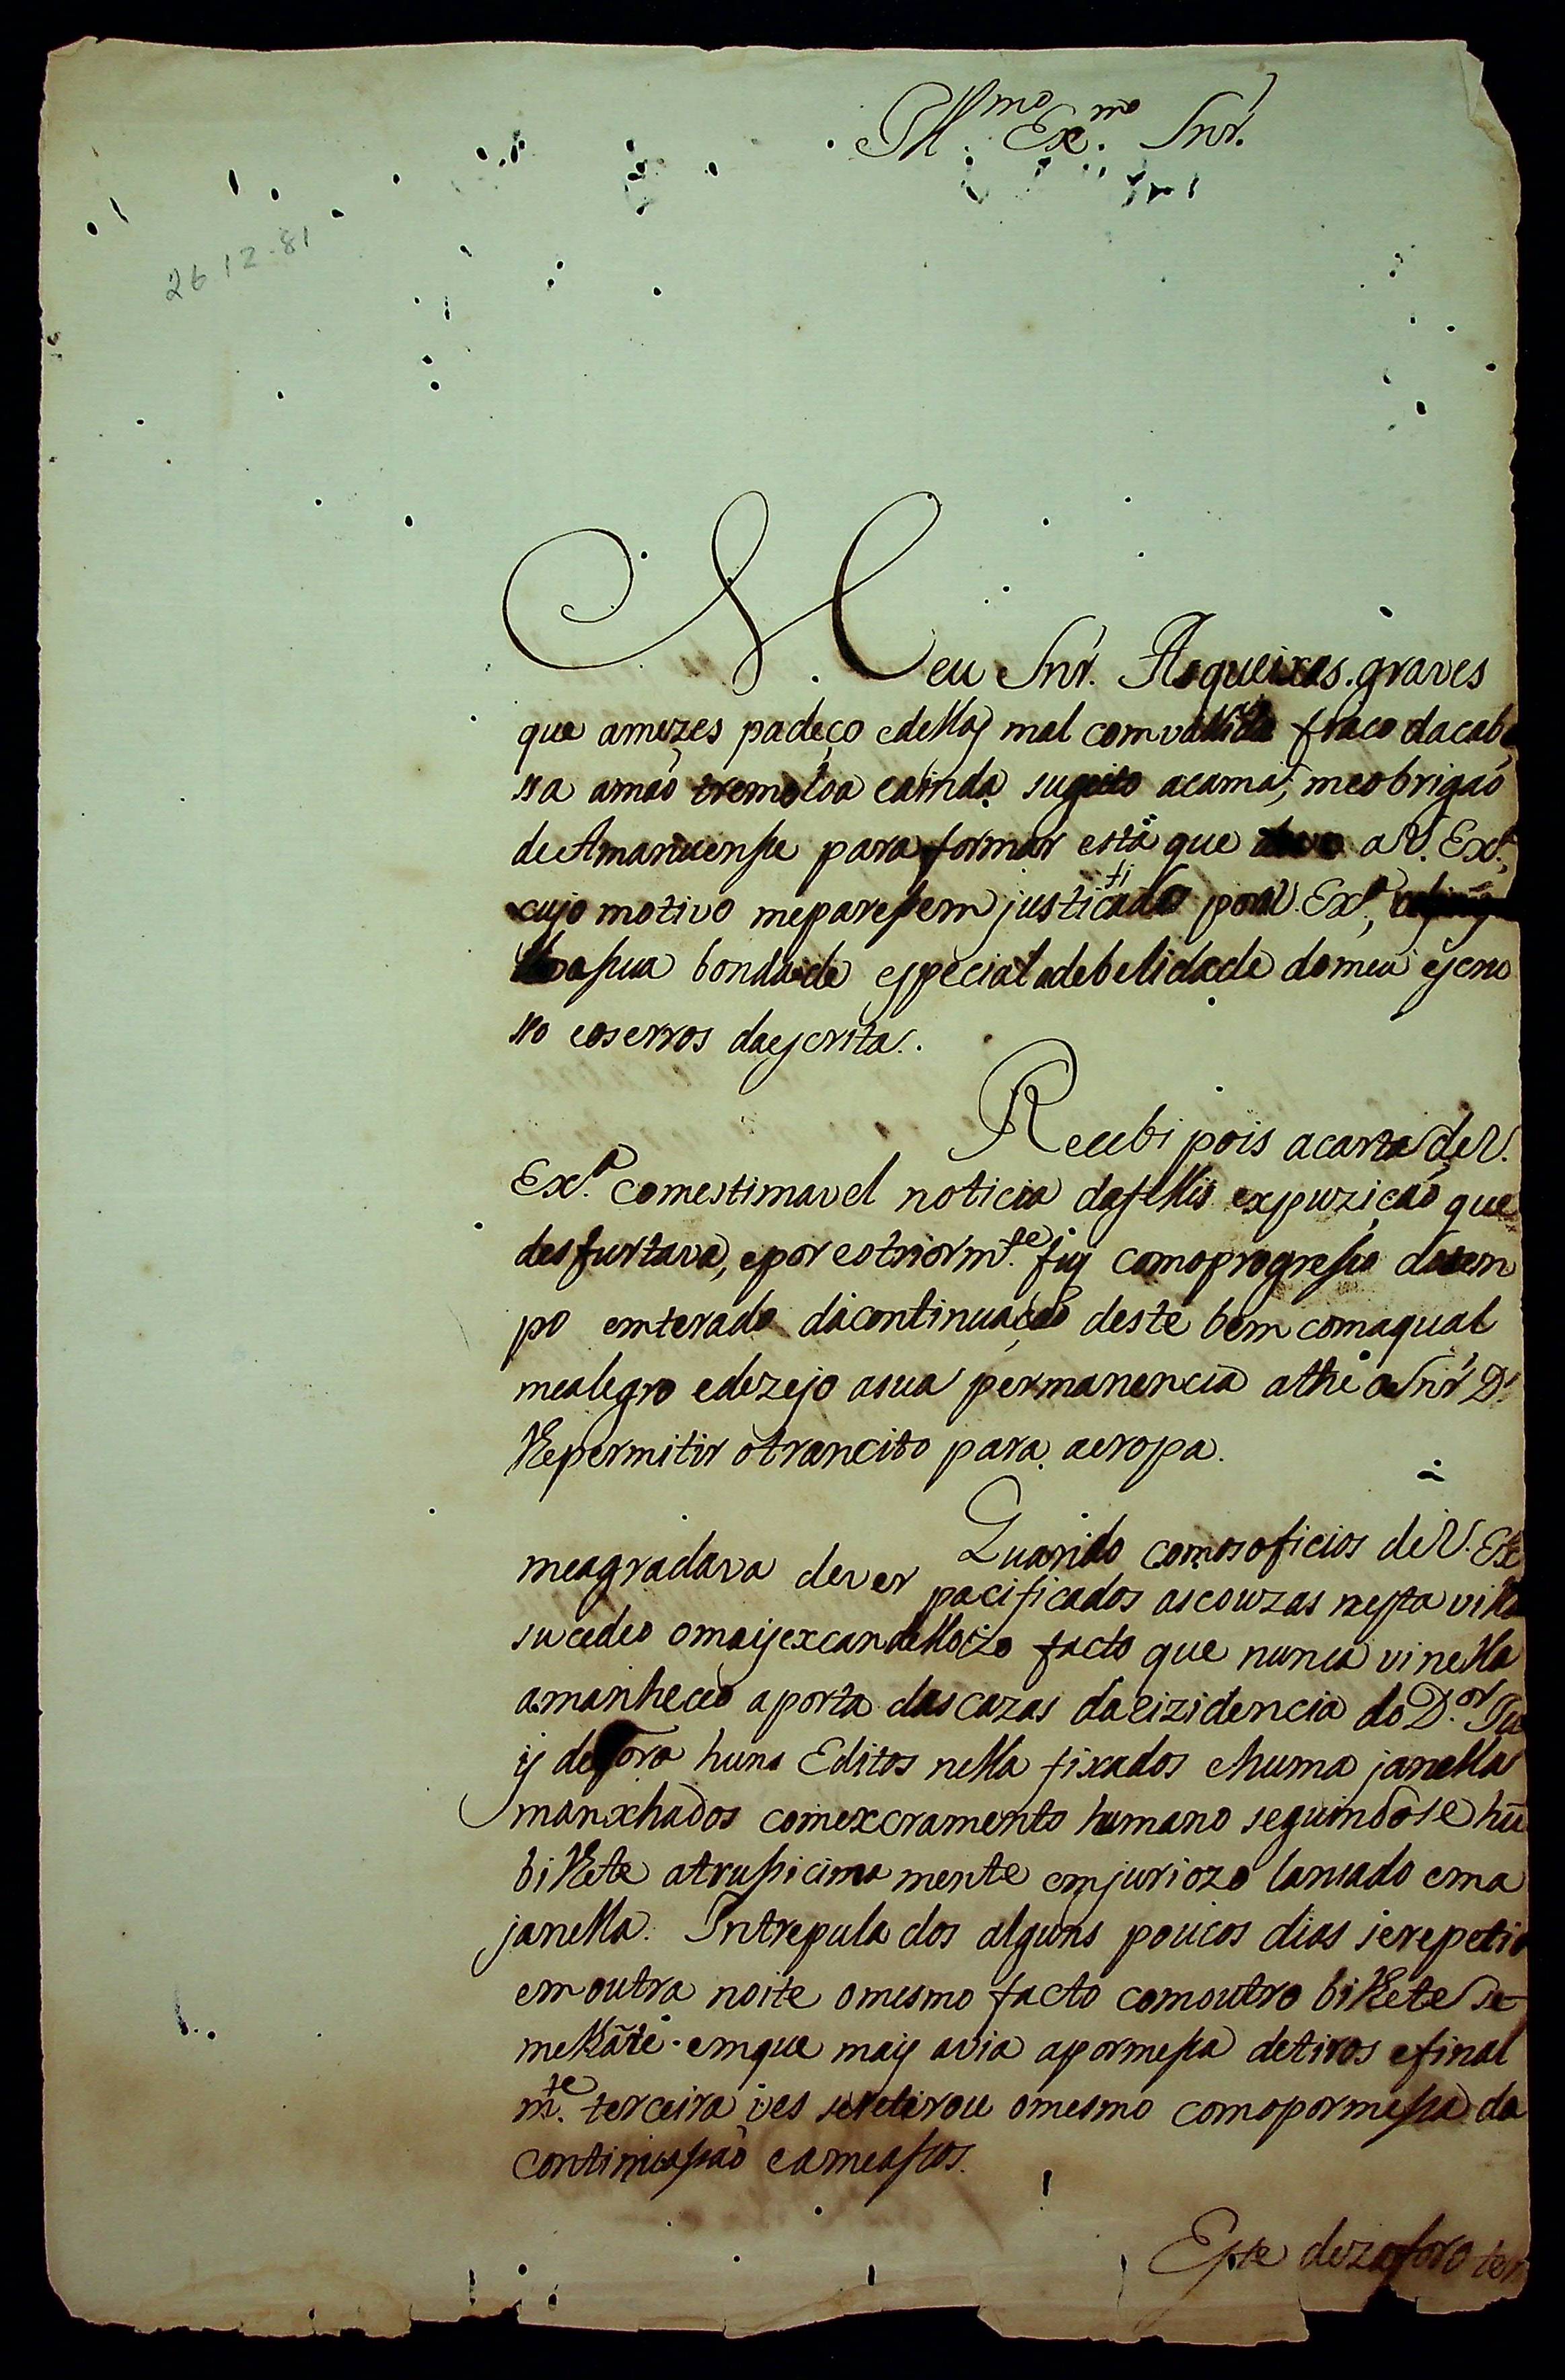 Ill.mo Ex.mo Snr.
26 12-81
Meu Snr. As queixas graves
que amezes padeço edellas mal comvallido fraco dacabe
ssa amaõ tremoloa eainda sugeito acama, meobrigaõ
deAmanuense para formar esta que devo aV. Ex.ª,
cujo motivo meparessem justificado por V. Ex.ª,
asua bondade especial adebelidade domeu escru
llo eoserros daescrita.
Recebi pois acarta deV.
Ex.ª comestimavel noticia dafellis expuziçaõ que
desfurtava, eporestriorm.te fuy comoprogresso dotem
po emterado dacontinuaçaõ deste bem comaqual
mealegro edezejo asua permanencia athe oSnr D.s
lhepermitir otrancito para aeropa.
Quando comosoficios deV. Ex
meagradava dever pacificados ascouzas nesta villa
sucedeo omaisexcandellozo facto que nunca vinella
amanheceo aporta dascazas dareizidencia do D.or Ju
is deFora huns Editos nella fixados ehuma janella
manxhados comexcramento humano seguindose hũ
bilhete atrussicima mente emjuriozo lansado ema
janella. Intrepulados alguns poucos dias serepetio
emoutra noite omesmo facto comoutro bilhete se
melhãte emque mais avia apormessa detiros efinal
m.te terceira ves seretirou omesmo comopormessa da
continuassaõ eameassos.
Este dezaforo tem